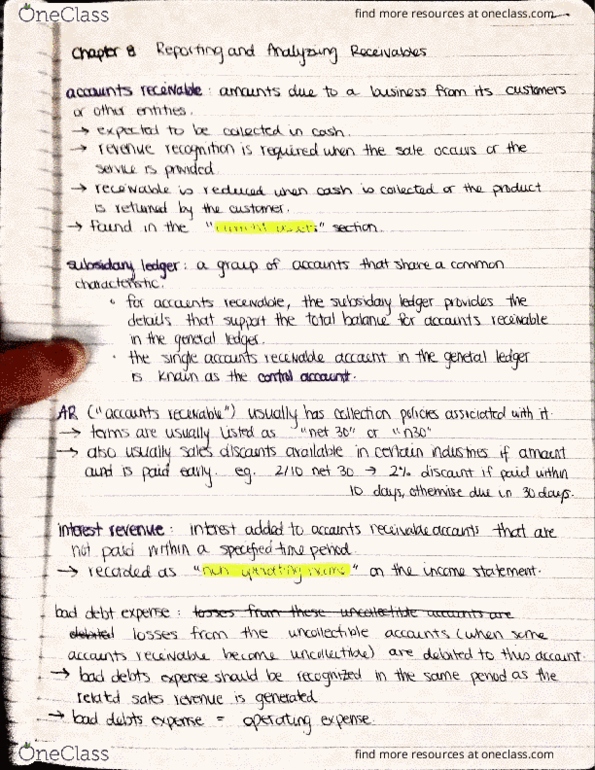 OneClass find more resources at oneclass.com
Chapter 8 Reporting and Analyzing Receivables
accounts receivable: amounts due to a business from its customers
or other entities.
→ expected to be collected in cash.
→ revenue recognition is required when the sale occurs or the
service is provided
→ receivable is reduced when cash is collected or the product
is returned by the customer.
→ found in the "current assets" section.
subsidary ledger: a group of accounts that share a common
characteristic.
• for accounts receivable, the subsidary ledger provides the
details that support the total balance for accounts receivable
in the general ledger.
• the single accounts receivable account in the general ledger
is known as the control account.
AR ("accounts receivable") usually has collection policies associated with it.
→ terms are usually listed as "net 30" or "n30"
→ also usually sales discounts available in certain industries if amount
is paid early. eg. 2/10 net 30 → 2% discount if paid within
10 days, otherwise due in 30 days.
interest revenue: interest added to accounts receivable accounts that are
not paid within a specified time period.
→ recorded as "non operating income" on the income statement.
bad debt expense: losses from these uncollectible accounts are
debited losses from the uncollectible accounts (when some
accounts receivable become uncollectible) are debited to this account.
→ bad debts expense should be recognized in the same period as the
related sales revenue is generated
→ bad debts expense = operating expense.
OneClass find more resources at oneclass.com